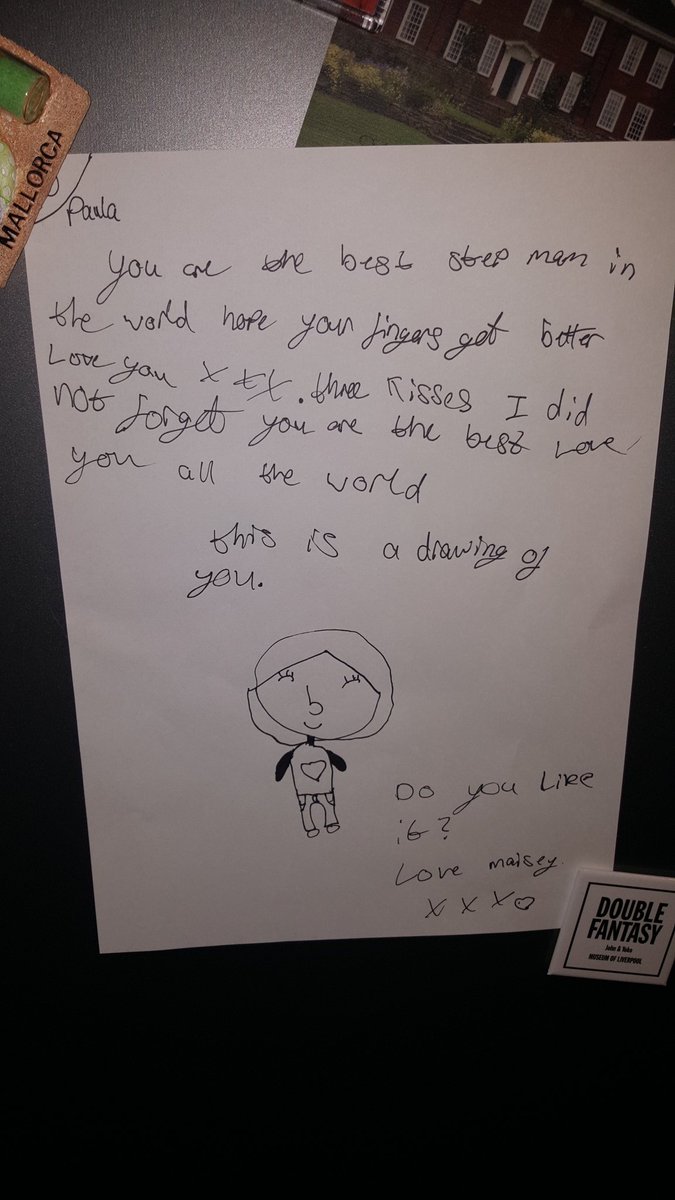 MALLORCA
Paula
you are the best step mam in
the world hope your fingers get better
Love you x x x. three kisses I did
not forget you are the best Love
you all the world
this is a drawing of
you.
Do you Like
it?
Love maisey.
x x x
DOUBLE
FANTASY
John & Yoko
MUSEUM OF LIVERPOOL